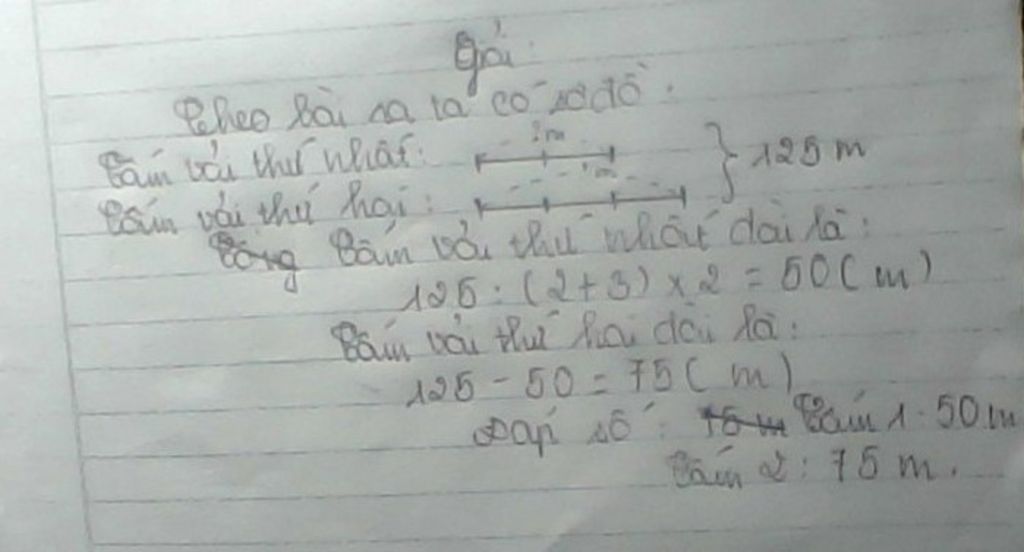 Giải:
Theo bài ra ta có sơ đồ:
?m
Tấm vải thứ nhất: } 125 m
?m
Tấm vải thứ hai:
Tấm vải thứ nhất dài là:
125 : (2+3) x 2 = 50 ( m )
Tấm vải thứ hai dài là:
125 - 50 = 75 ( m )
Đáp số : Tấm 1: 50 m
Tấm 2 : 75 m.